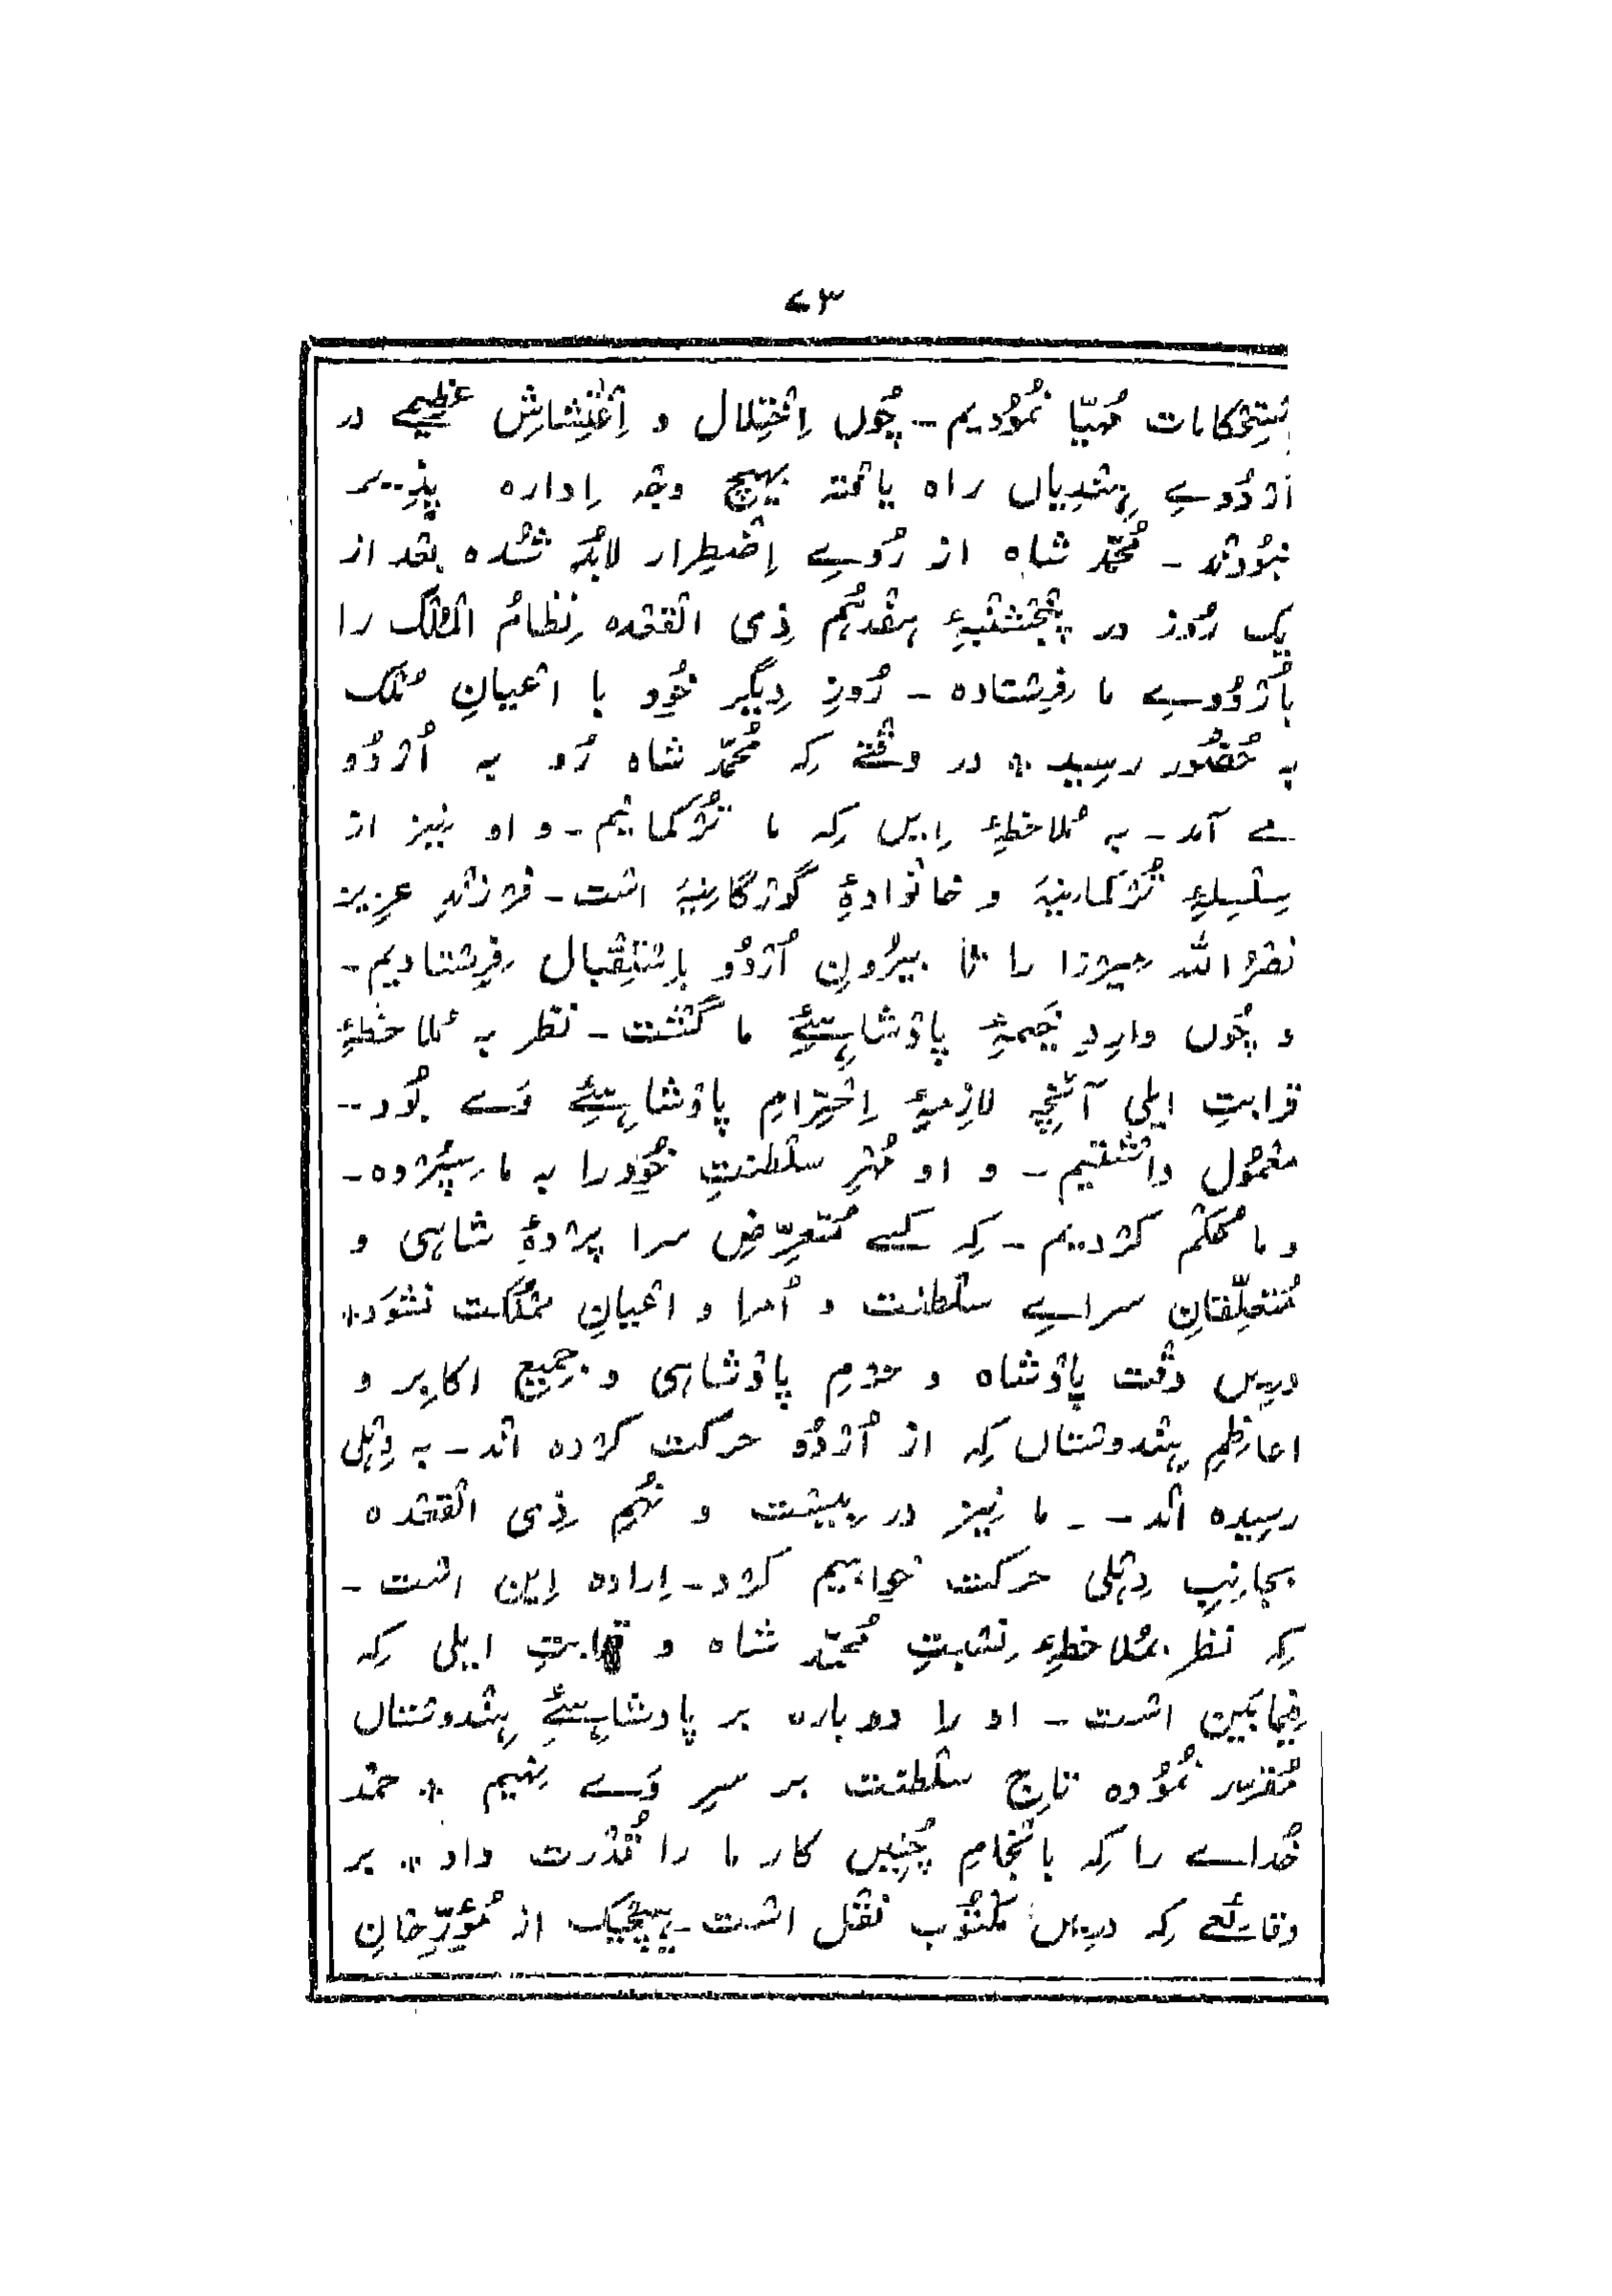 ۷۳
ستحکامات مُہیّا نمُوْدیم - چُوں اِخْتِلال و اِغْتِشاشِ عظِیمے در
اُرْدُوےِ ہِنْدِیاں راہ یافْتہ بہیچ وجْہ اِدارہ پذِیر
نبُوْدنْد - مُحمّد شاہ از رُوےِ اِضْطِرار لابُدّ شُدہ بعْد از
یک رُوز در پنْجشنْبۂِ ہفْدہُمِ ذِی الْقعْدہ نِظامُ الْمُلْک را
باُرْدُوےِ ما فرِسْتادہ - رُوزِ دِیگر خُود با اعْیانِ مُلْک
بہ حُضُور رسِید * در وقْتے کِہ مُحمّد شاہ رُو بہ اُرْدُو
مے آمد - بہ مُلاحظۂِ اِیں کِہ ما تُرْکمانِیم - و او نِیز از
سِلْسِلۂِ تُرْکمانِیّہ و خانْوادۂِ گورْگانِیّہ اسْت - فرْزنْدِ عزِیز
نصْرُ اللہ مِیرْزا را تا بیرُونِ اُرْدُو باِسْتِقْبال فرِسْتادیم -
و چُوں وارِدِ خَیمۂِ پادْشاہئِ ما گشْت - نظر بہ مُلاحظۂِ
قرابتِ ایلی آنْچِہ لازِمۂِ اِحْتِرامِ پادْشاہئِ وَے بُود -
معْمُول داشْتیم - و او مُہْرِ سلْطنتِ خُود را بہ ما سِپُرْدہ -
و ما حُکْم کرْدیم - کِہ کسے مُتعرِّضِ سرا پرْدۂِ شاہی و
مُتعلِّقانِ سراےِ سلْطنت و اُمرا و اعْیانِ ممْلکت نشَود *
درِیں وقْت پادْشاہ و حرمِ پادْشاہی و جمِیعِ اکابِر و
اعاظِمِ ہِنْدوسْتاں کِہ از اُرْدُو حرکت کرْدہ انْد - بہ دِہْلی
رسِیدہ انْد - - ما نِیز در بِیسْت و نُہُمِ ذِی الْقعْدہ
بجانِبِ دِہْلی حرکت خواہیم کرْد - اِرادہ اِین اسْت -
کِہ نظر بمُلاحظۂِ نِسْبتِ مُحمّد شاہ و قرابتِ ایلی کِہ
فِیمابَین اسْت - او را دوبارہ بر پادشاہئِ ہِنْدوسْتاں
مُقرّر نمُوْدہ تاجِ سلْطنت بر سرِ وَے نِہیم * حمْد
خُداے را کِہ بانْجامِ چُنِیں کار ما را قُدْرت داد * بر
وقائِعے کِہ درِیں مکْتُوب نقْل اسْت - ہیچْیک از مُؤرِّخانِ